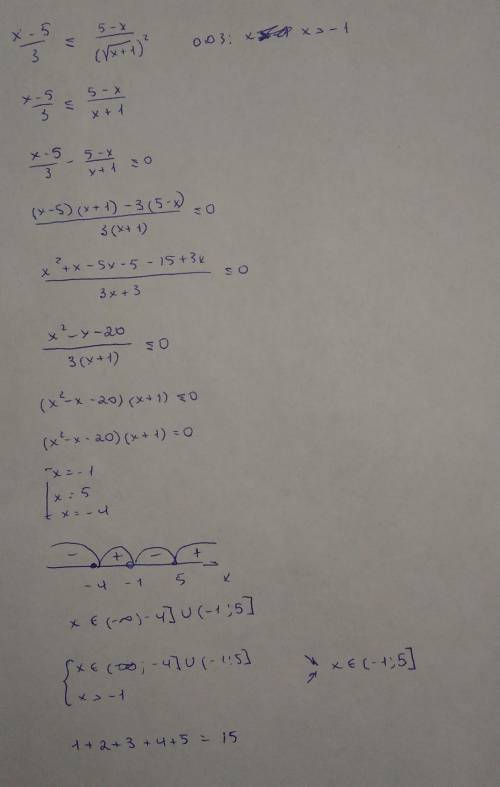 (x-5)/3 ≤ (5-x)/(√(x+1))² ОДЗ: x > -1
(x-5)/3 ≤ (5-x)/(x+1)
(x-5)/3 - (5-x)/(x+1) ≤ 0
((x-5)(x+1) - 3(5-x))/(3(x+1)) ≤ 0
(x² + x - 5x - 5 - 15 + 3x)/(3x+3) ≤ 0
(x² - x - 20)/(3(x+1)) ≤ 0
(x² - x - 20)(x+1) ≤ 0
(x² - x - 20)(x+1) = 0
[x = -1
x = 5
x = -4
- + - +
-4 -1 5 x
x ∈ (-∞; -4] ∪ (-1; 5]
{x ∈ (-∞; -4] ∪ (-1; 5] x ∈ (-1; 5]
x > -1
1 + 2 + 3 + 4 + 5 = 15